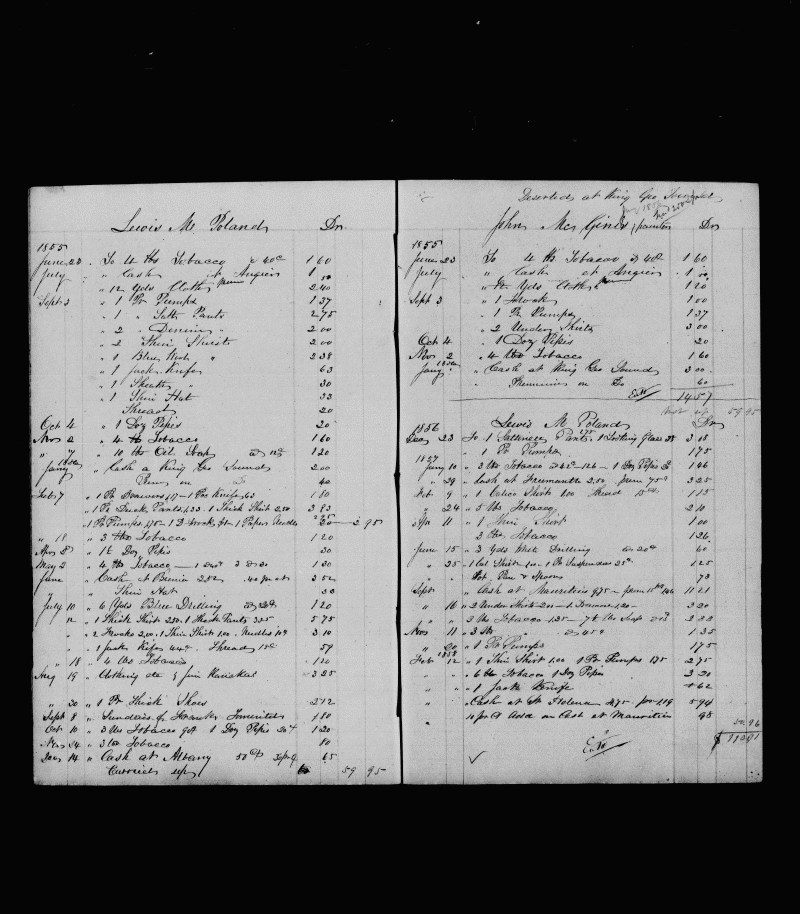 Lewis M Poland Dr.
1855
June 23 To 4 lbs Tobacco @ 40c 1 60
July " Cash at Angier 1 00
" 12 yds Cloth 2 40
Sept 3 " 1 Pr Pumps 1 37
" 1 " Sattt Pants 2 75
" 2 " Denim " 2 00
" 2 " Thin Shirts 2 00
" 1 Blue " 2 38
" 1 Jack Knife 63
" 1 Sheath " 30
" 1 Thin Hat 33
Thread 20
Oct 4 " 1 Doz Pipes 20
Nov 2 " 4 lb Tobacco 1 60
" 7 " 10 lb Oil Soap @ 12c 1 20
1856
Jany " Cash at King Geo Sound 2 00
Prem on Do 40
Feb 7 " 1 Pr Drawers 1,17 - 1 Pr Knife 63 1 80
" 1 Pr Duck Pants 1,33. 1 Thick Shirt 2,50 3 83
" 1 Pr Pumps 1,75 - 1 Paper Needles 20 - 2 95
" 18 " 3 lbs Tobacco 1 20
Apr 8 " 1 Doz Pipes 30
May 2 " 4 lbs Tobacco 1 30
June " Cash at 2 52
Thin Hat 33
July 10 " 6 yds Blue Drilling 1 20
12 " 1 Thick Shirt 2,50. 1 Thick Pants 3,25 5 75
" 2 Frocks 2,00. 1 Thin Shirt 1,00. Needles 10c 3 10
" 1 Jack Knife 44c. Thread 15c 59
" 18 " 4 lbs Tobacco 1 20
Aug 19 " Clothing &c 3 25
" 20 " 1 Pr Thick Shoes 2 12
Sept 8 " Sundries 1 80
Oct 10 " 3 lbs Tobacco 1 Doz Pipes 1 20
Nov 24 " 3 lbs Tobacco 80
Dec 14 " Cash at Albany 65
Carried up 59 95
Deserted at King Geo Sound
John Mc Ginis Dr
1855
June 23 To 4 lbs Tobacco @ 40c 1 60
July " Cash at Angier 1 00
" 12 yds Cloth 1 20
Sept 3 " 1 Frock 1 00
" 1 Pr Pumps 1 37
" 2 Under Shirts 3 00
Oct 4 " 1 Doz Pipes 20
Nov 2 " 4 lbs Tobacco 1 60
1856
Jany " Cash at King Geo Sound 3 00
" Premium on Do 60
14 57
59 95
1856 Lewis M Poland Dr
Dec 23 To 1 Pants. 1 Looking Glass 3 18
" 1 Pr Pumps 1 75
1857
Jany 10 " 3 lbs Tobacco 1 Doz Pipes 1 46
" 29 " Cash at Freemantle 2,50 prem 75c 3 25
Feb 9 " 1 Calico Shirt 1,00 Thread 15c 1 15
" 24 " 5 lbs Tobacco 2 10
Apr 11 " 1 Thin Shirt 1 00
" 3 lbs Tobacco 1 26
June 15 " 3 yds White Drilling @ 20c 60
" 25 " 1 Cal Shirt 1,00 - 1 Pr Suspenders 25c 1 25
" Pot Pan & Spoons 73
Sept " Cash at Mauritius 9,75 - prem 1,46 11 21
" 16 " 2 Under Shirts 2,00 - 1 Drawers 1,20 3 20
" " 3 lbs Tobacco 1,35 - 7 lbs Soap 2 33
Nov 11 " 3 lb " @ 45c 1 35
" 20 " 1 Pr Pumps 1 75
1858
Feb 12 " 1 Thin Shirt 1,00 1 Pr Pumps 1,75 2 75
" " 6 lbs Tobacco 1 Doz Pipes 2 20
" " 1 Jack Knife 62
" Cash at St Helena 4,75 pr 1,19 5 94
" 10 pr C Add on Cash at Mauritius 98